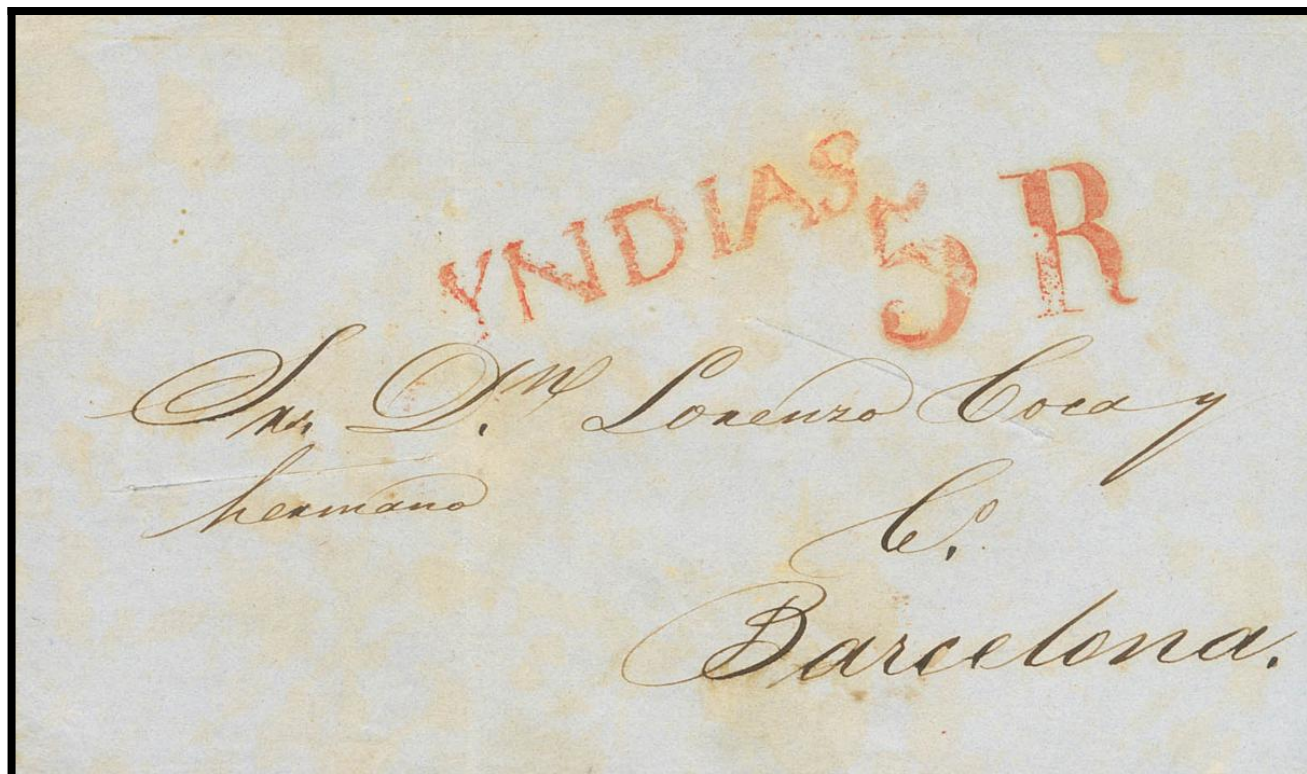 YNDIAS 5 R
Snr. D.n Lorenzo Coca y
hermano
C.
Barcelona.